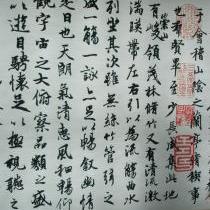 于會稽山陰之蘭亭脩禊事
也羣賢畢至少長咸集此地
有崇山峻領茂林脩竹又有清流激
湍暎帶左右引以為流觴曲水
列坐其次雖無絲竹管弦之
盛一觴一詠亦足以暢叙幽情
是日也天朗氣清惠風和暢仰
觀宇宙之大俯察品類之盛
以遊目騁懷足以極視聽之